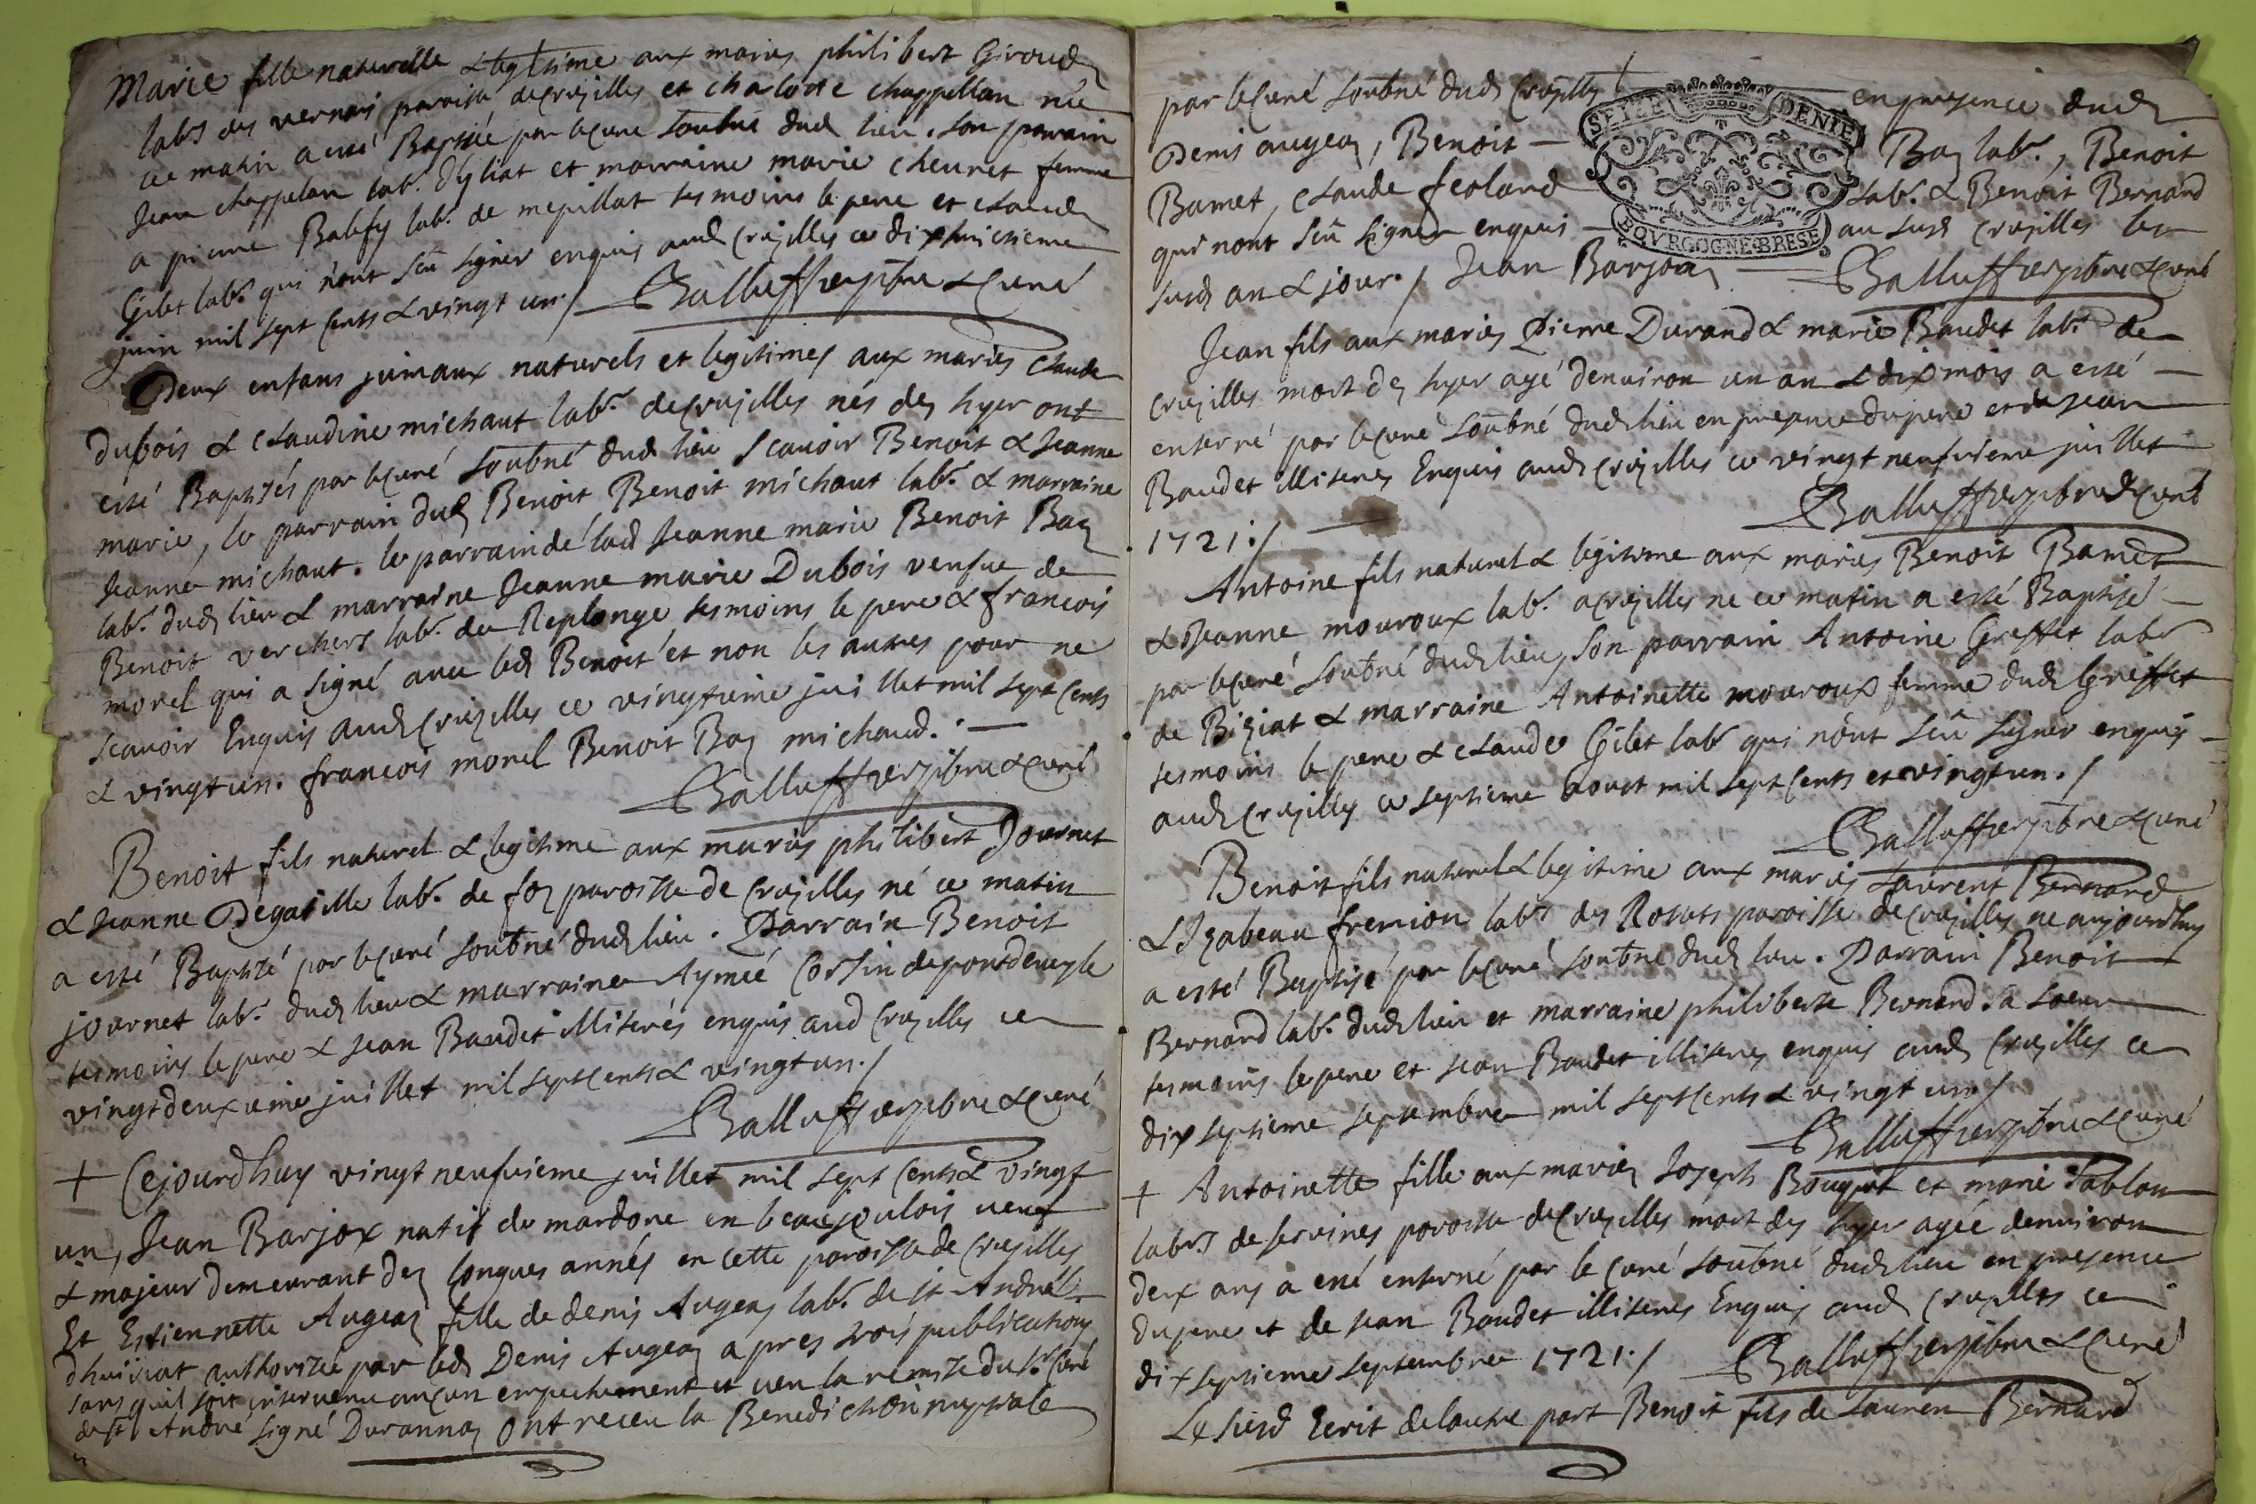 Marie fille naturelle & legitime aux maries philibert Giroud
labrs des vernais paroisse decrusilles et charlotte chappellan née
ce matin a esté Baptisée par le curé soubné dud lieu. son parrain
Jean chappelan labr. et marraine marie cheuret femme
a pierre labr. de mepillat tesmoins le pere et claude
Gilet labr. qui n'ont sçu signer enquis aud crusilles ce dixhuictieme
juin mil sept cents & vingt un./ Balluffier pbre & curé
Deux enfans jumaux naturels et legitimes aux maries claude
dubois & claudine michaut labr. decrusilles nés des hyer ont
esté Baptisés par le curé soubné dud lieu scavoir Benoit & Jeanne
marie, le parrain dud Benoit Benoit michaut labr. & marraine
Jeanne michaut. le parrain de lad Jeanne marie Benoit Bay
labr. dud lieu & marraine Jeanne marie Dubois veufue de
Benoit verchere labr. de Replonge tesmoins le pere & francois
morel qui a signé avec led Benoit et non les autres pour ne
scauoir Enquis aud crusilles ce vingtieme juillet mil sept cents
& vingt un. francois morel Benoit Bay michaud. —
Balluffier pbre & curé
Benoit fils naturel & legitime aux maries philibert Journet
& Jeanne Degaille labr. de foy paroisse de crusilles né ce matin
a esté Baptisé par le curé soubné dud lieu. Parrain Benoit
journet labr. dud lieu & marraine Aymée Corsin depontdeveyle
tesmoins le pere & Jean Baudet illiterés enquis aud crusilles ce
vingtdeuxieme juillet mil sept cents & vingt un./
Balluffier pbre & curé
+ Cejourdhuy vingt neufuieme juillet mil sept cents & vingt
un, Jean Barjox natif de mardore en beaujoulois veuf
& majeur demeurant des longues annés en cette paroisse de crusilles
Et Estiennette Augeay fille de denis Augeay labr. de st André
dhuiriat authorisée par led Denis Augeay apres trois publications
sans quil soit intervenu aucun empechement et veu la remise du sr. curé
de st André signé Durannay ont receu la Benediction nuptiale
par le curé soubné dud crusilles en presence dud
Denis augeay, Benoit — Bay labr., Benoit
Bamet, claude feoland labr. & Benoit Bernard
qui nont sçu signer enquis — au susd crusilles les
susd an & jour./ Jean Barjoay — Balluffier pbre & curé
SEIZE DENIE
BOVRGOGNE BRESE
Jean fils aux maries Pierre Durand & marie Baudet labr. de
crusilles mort des hyer agé denuiron un an & dix mois a esté —
enterré par le curé soubné dud lieu en presence du pere et de Jean
Baudet illiteres Enquis aud crusilles ce vingt neufuieme juillet
1721./ — Balluffier pbre & curé
Antoine fils naturel & legitime aux maries Benoit Bamet
& Jeanne mouroux labr. acrusilles ne ce matin a esté Baptisé —
par le curé soubné dud lieu, son parrain Antoine Greffet labr
de Biziat & marraine Antoinette mouroux femme dud Greffet
tesmoins le pere & claude Gilet labr qui n'ont sçu signer enquis —
aud crusilles ce septieme aoust mil sept cents et vingt un./
Balluffier pbre & curé
Benoit fils naturel & legitime aux maries Laurent Bernard
& Izabeau fremion labrs des Rosats paroisse decrusilles ne aujourdhuy
a esté Baptisé par le curé soubné dud lieu. Parrain Benoit
Bernard labr. dud lieu et marraine philiberte Bernard sa soeur
tesmoins le pere et Jean Baudet illiteres enquis aud crusilles ce
dix septieme septembre mil sept cents & vingt un/
Balluffier pbre & curé
+ Antoinette fille aux maries Joseph Bouquet et marie Sablon
labrs de servines paroisse decrusilles mort des hyer agée denuiron
deux ans a esté enterré par le curé soubné dud lieu en presence
du pere et de Jean Baudet illiteres Enquis aud crusilles ce
dix septieme septembre 1721./ Balluffier pbre & curé
Le susd Ecrit de lautre part Benoit fils de Lauren Bernard